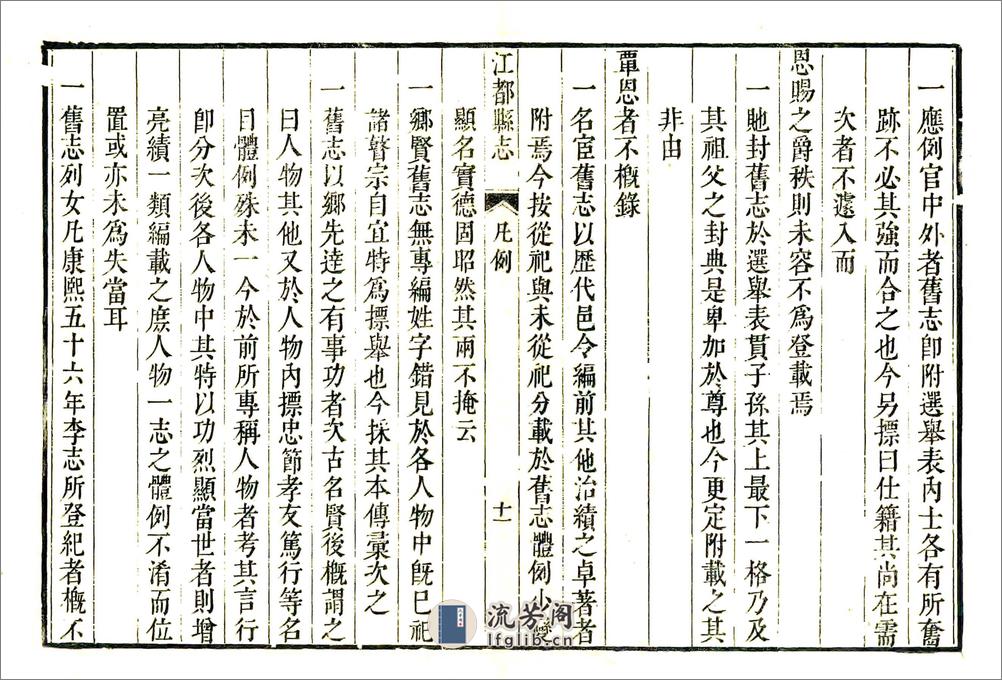 一應例官中外者舊志卽附選舉表內士各有所奮
跡不必其強而合之也今另摽曰仕籍其尚在需
次者不遽入而
恩賜之爵秩則未容不爲登載焉
一貤封舊志於選舉表貫子孫其上最下一格乃及
其祖父之封典是卑加於尊也今更定附載之其
非由
覃恩者不槪錄
一名宦舊志以歷代邑令編前其他治績之卓著者
附焉今按從祀與未從祀分載於舊志體例小變
顯名實德固昭然其兩不掩云
江都縣志
凡例
十一
一鄉賢舊志無專編姓字錯見於各人物中旣已祀
諸瞽宗自宜特爲摽舉也今採其本傳彙次之
一舊志以鄉先達之有事功者次古名賢後槪謂之
曰人物其他又於人物內摽忠節孝友篤行等名
目體例殊未一今於前所專稱人物者考其言行
卽分次後各人物中其特以功烈顯當世者則增
亮績一類編載之庶人物一志之體例不淆而位
置或亦未爲失當耳
一舊志列女凡康熙五十六年李志所登紀者槪不
流芳阁
lfglib.cn